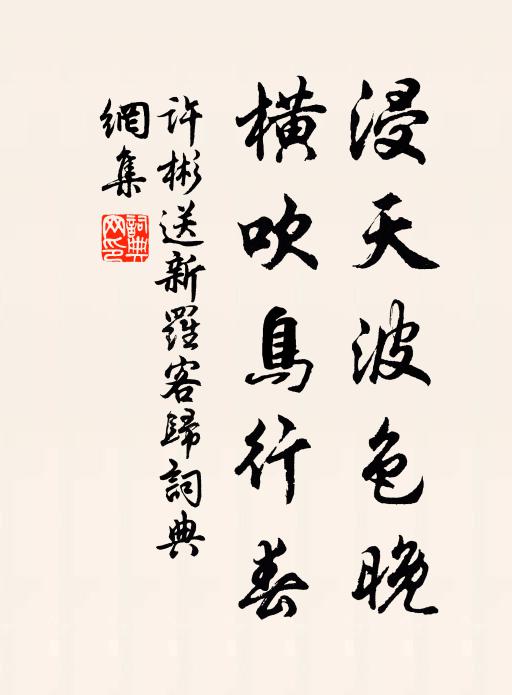 浸天波色晚
橫吹鳥行春
許彬送新羅客歸詞典
網集
詞典
网印